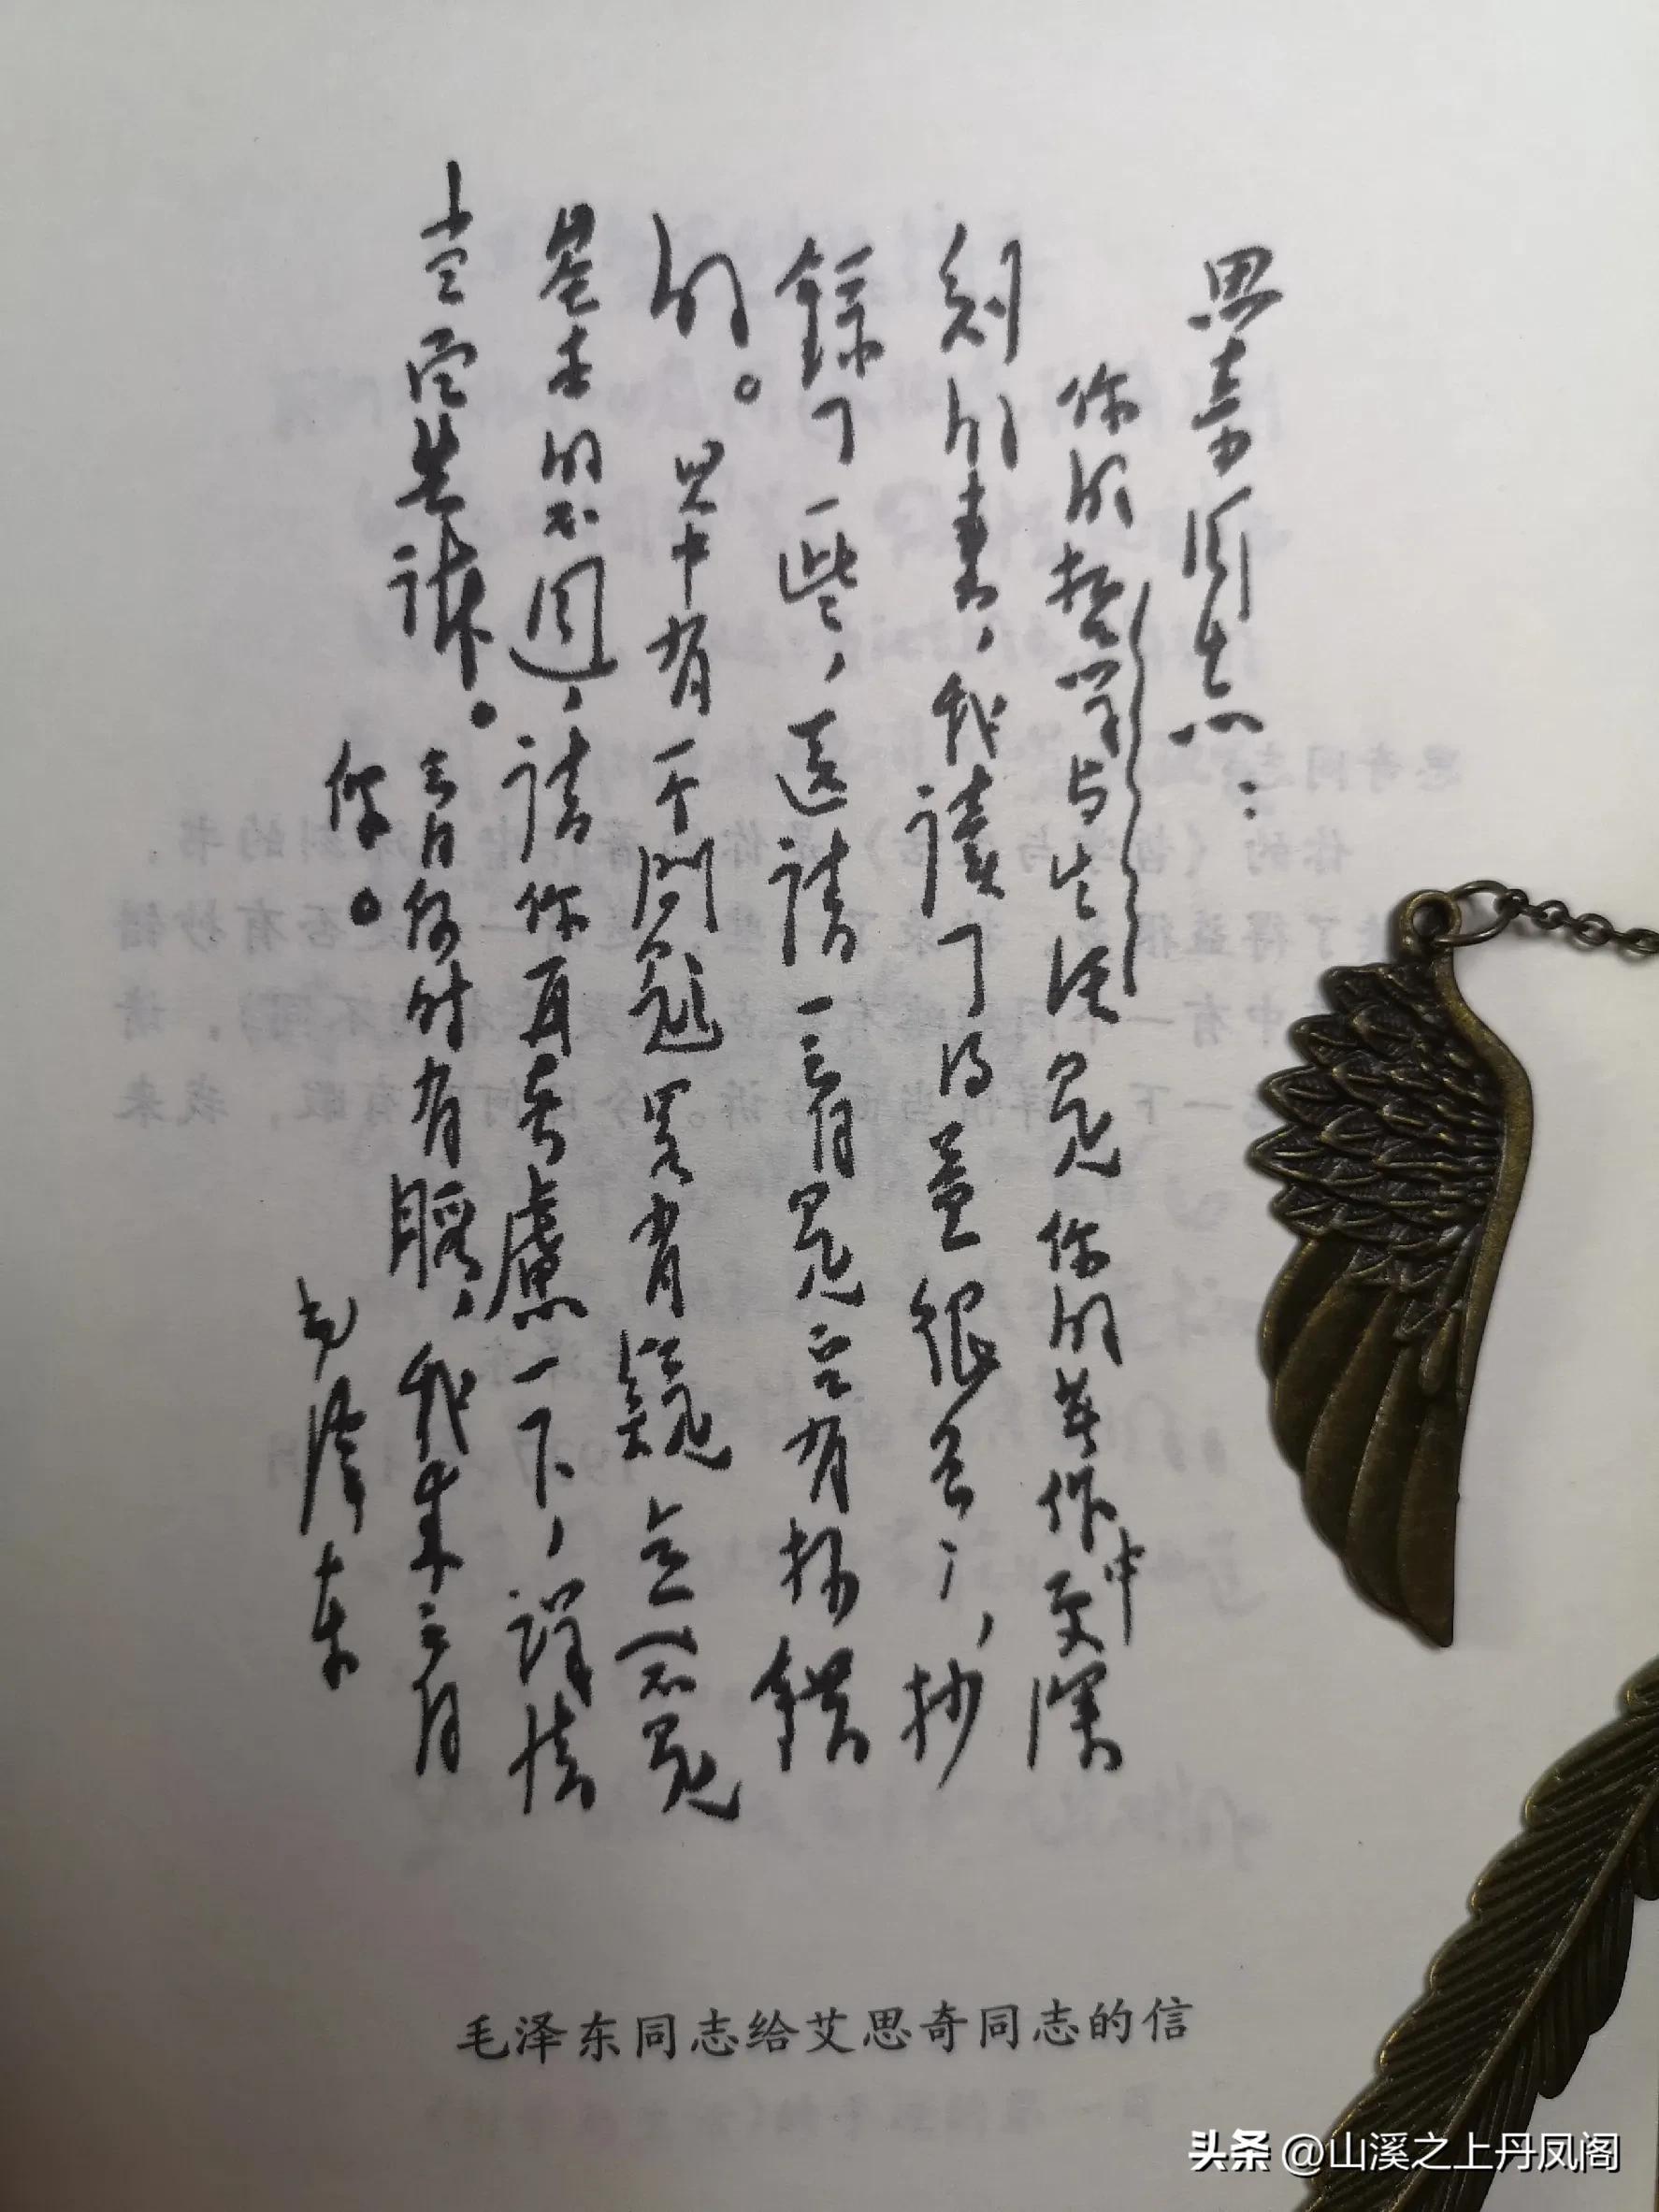 思奇同志：
你的哲学与生活是你的著作中更深
刻的書，我讀了得益很多，抄
錄了一些，送請一看是否有抄錯
的。其中有一个問題畧有疑点（不是
基本的不同），請你再考慮一下，詳情
当面告訴。今日何时有暇，我来看
你。
毛澤東
毛泽东同志给艾思奇同志的信
头条 @山溪之上丹凤阁